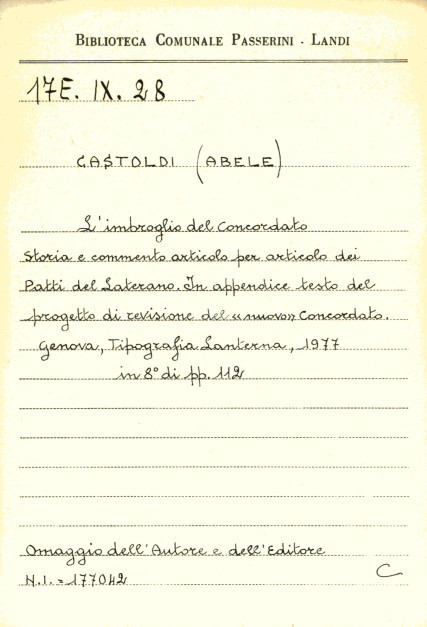 BIBLIOTECA COMUNALE PASSERINI - LANDI
17E. IX. 28
GASTOLDI (ABELE)
L'imbroglio del Concordato
Storia e commento articolo per articolo dei
Patti del Laterano. In appendice testo del
progetto di revisione del «nuovo» Concordato.
Genova, Tipografia Lanterna, 1977
in 8° di pp. 112
Omaggio dell'Autore e dell'Editore
N.I. = 177042
C